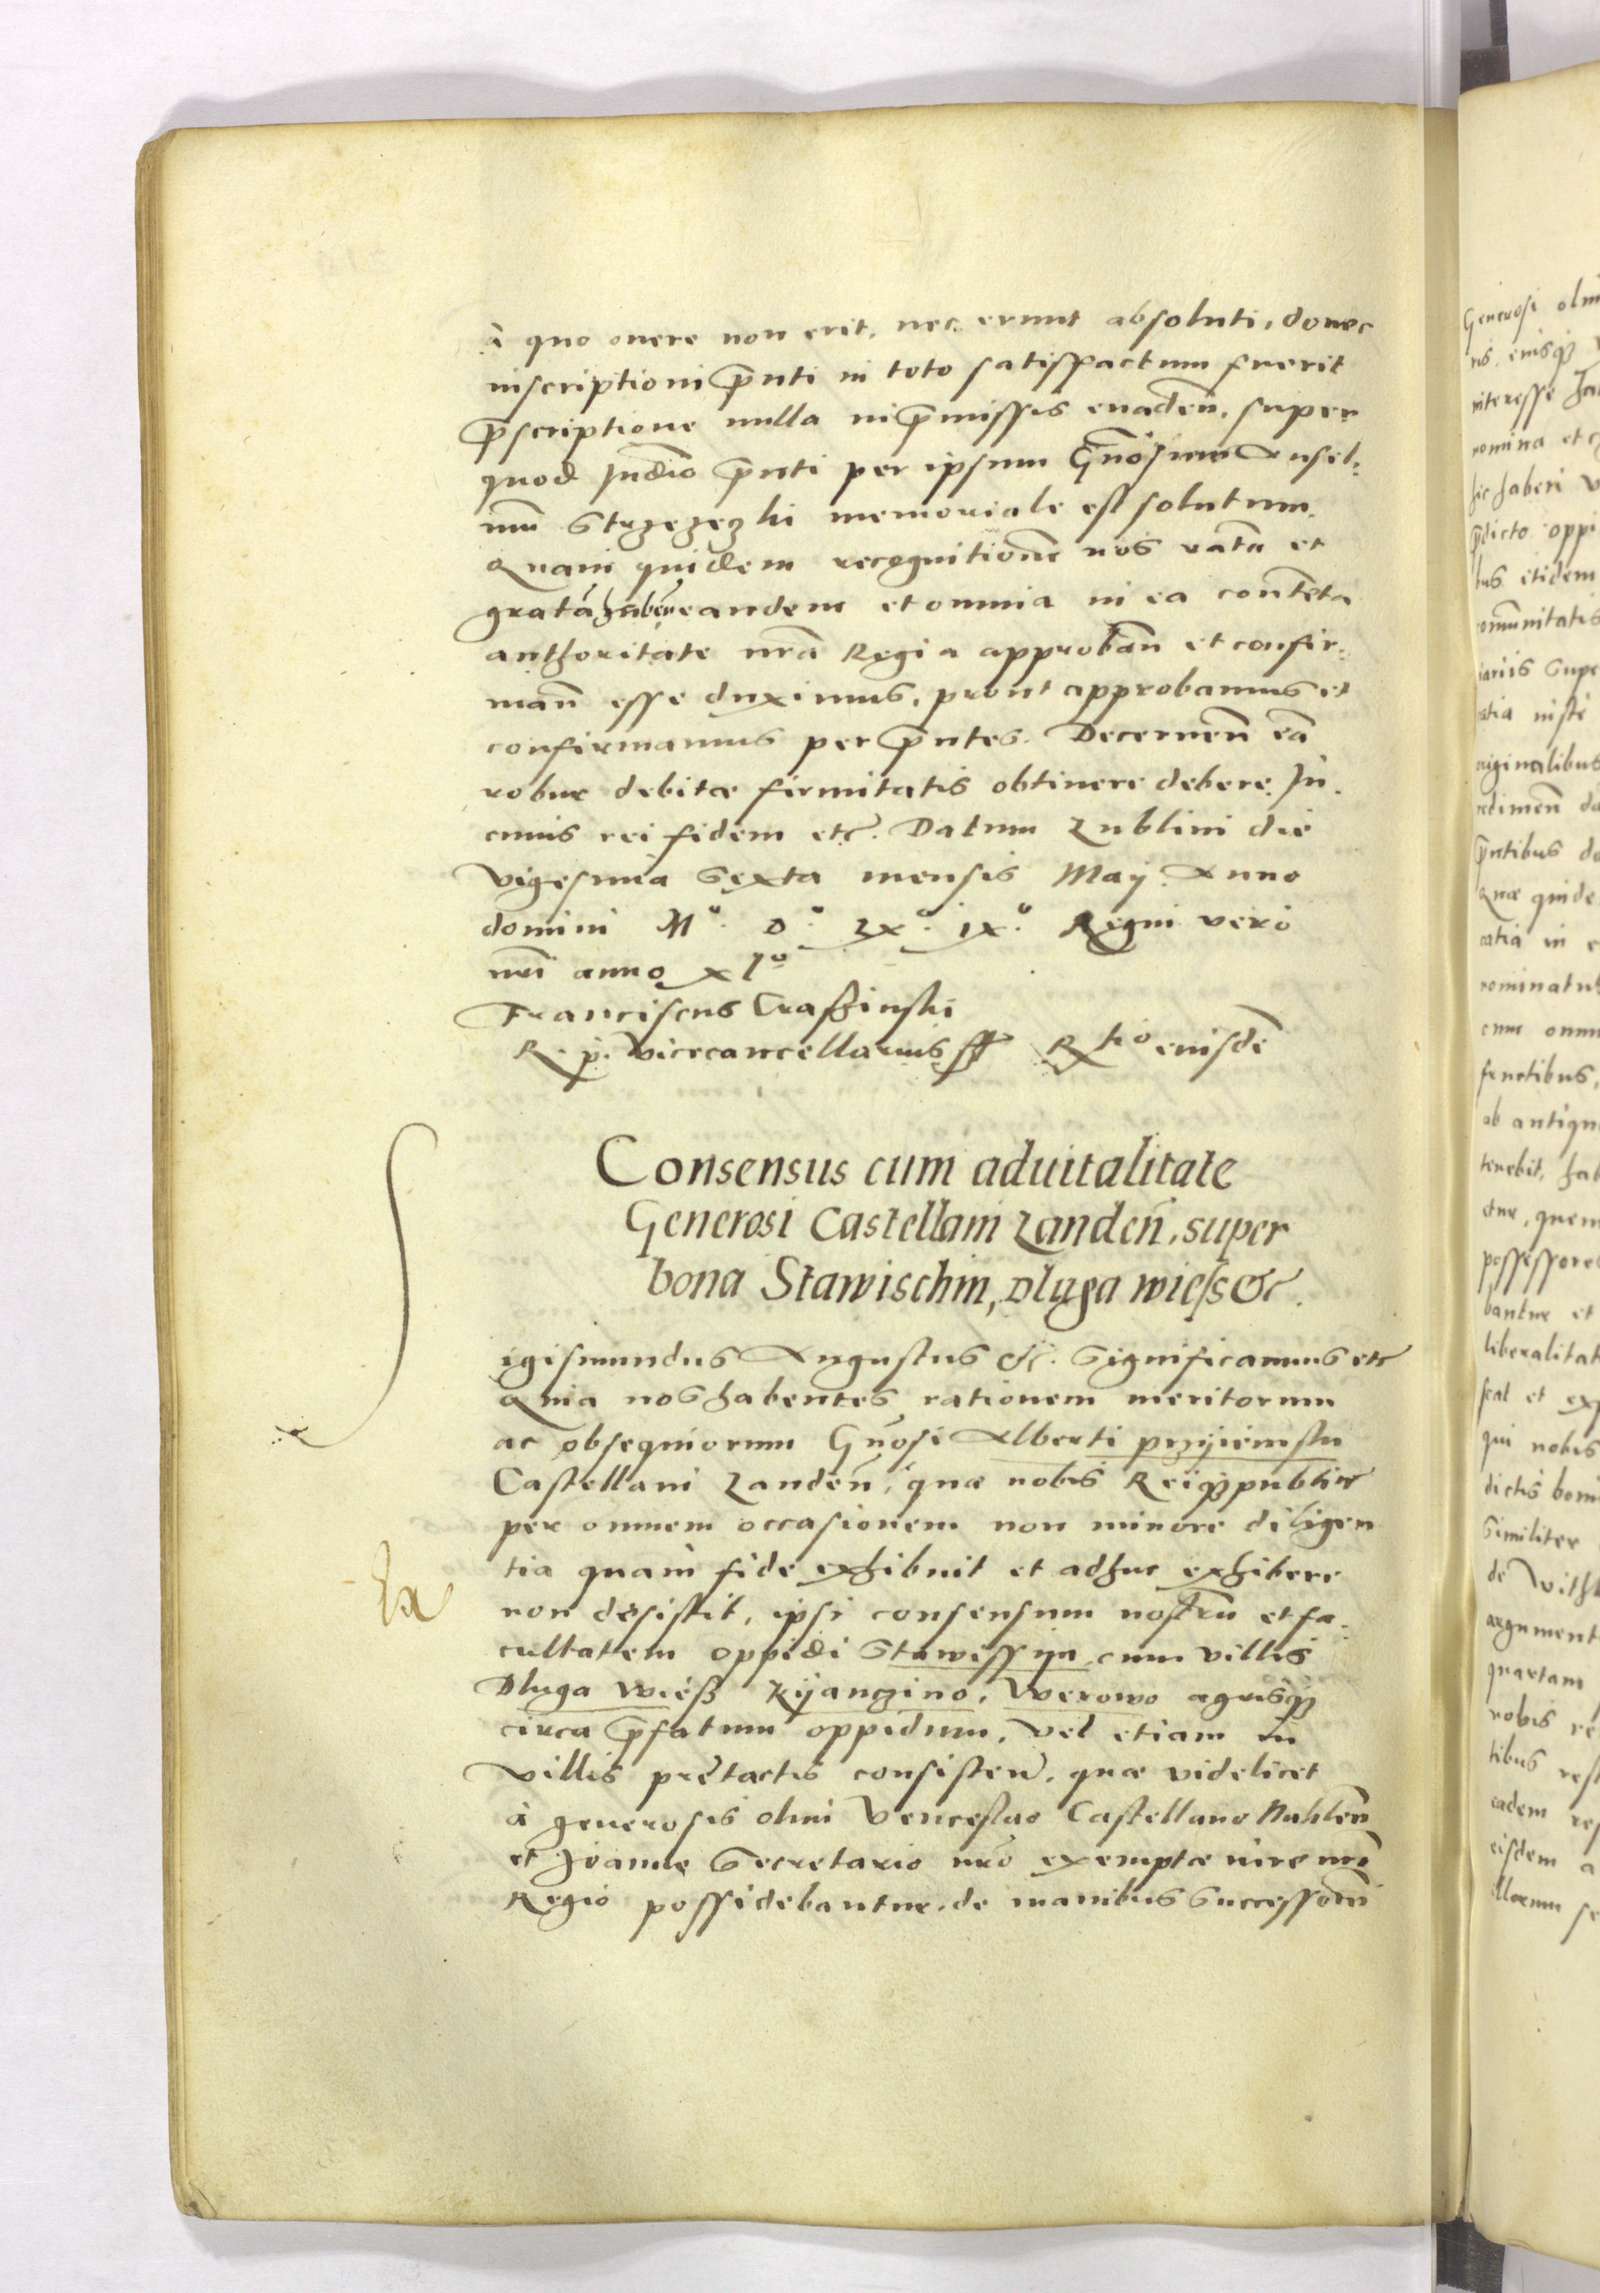 à quo onere non erit, nec erunt absoluti, donec
inscriptioni pñti in toto satisfactum fuerit
p̃scriptione nulla in p̃missis evadeñ, super
quod Judio pñti per ipsum Gñosum Ansel:
mũ Strzezezki memoriale est solutum.
Quam quidem recognitionẽ nos ratã et
gratã habeñ eandem et omnia in ea contẽta
authoritate nrã Regia approbañ et confir:
mañ esse duximus, prout approbamus et
confirmamus per pñtes. Decerneñ eã
robur debitæ firmitatis obtinere debere. In
cuius rei fidem etc. Datum Lublini die
vigesima Sexta mensis Maij Anno
domini Mº. Dº. LXº. IXº. Regni vero
nri anno xlº
Franciscus Crassinski
R. p. Vicecancellarius sst Rtio eiusdẽ
Consensus cum aduitalitate
Generosi Castellani Landeñ, super
bona Stawischin, Dluga wiess &c.
S
igismundus Augustus &c. Significamus etc
Quia nos habentes rationem meritorum
ac obsequiorum Gñosi Alberti przyiemski
Castellani Landeñ, quæ nobis Reiqꝫ publicæ
per omnem occasionem non minore diligen
tia quam fide exhibuit et adhuc exhibere
non desistit, ipsi consensum nostrũ et fa:
cultatem oppidi Stawissyn cum villis
Dluga wiesz Kyanczino, Werowo agrisqꝫ
circa p̃fatum oppidum, vel etiam in
villis prẽtactis consisteñ, quæ videlicet
à generosis olim Venceslao Castellano Nakleñ
et Joanne Secretario nrõ exemptæ iure nrõ
Regio possidebantur, de manibus Successorũ